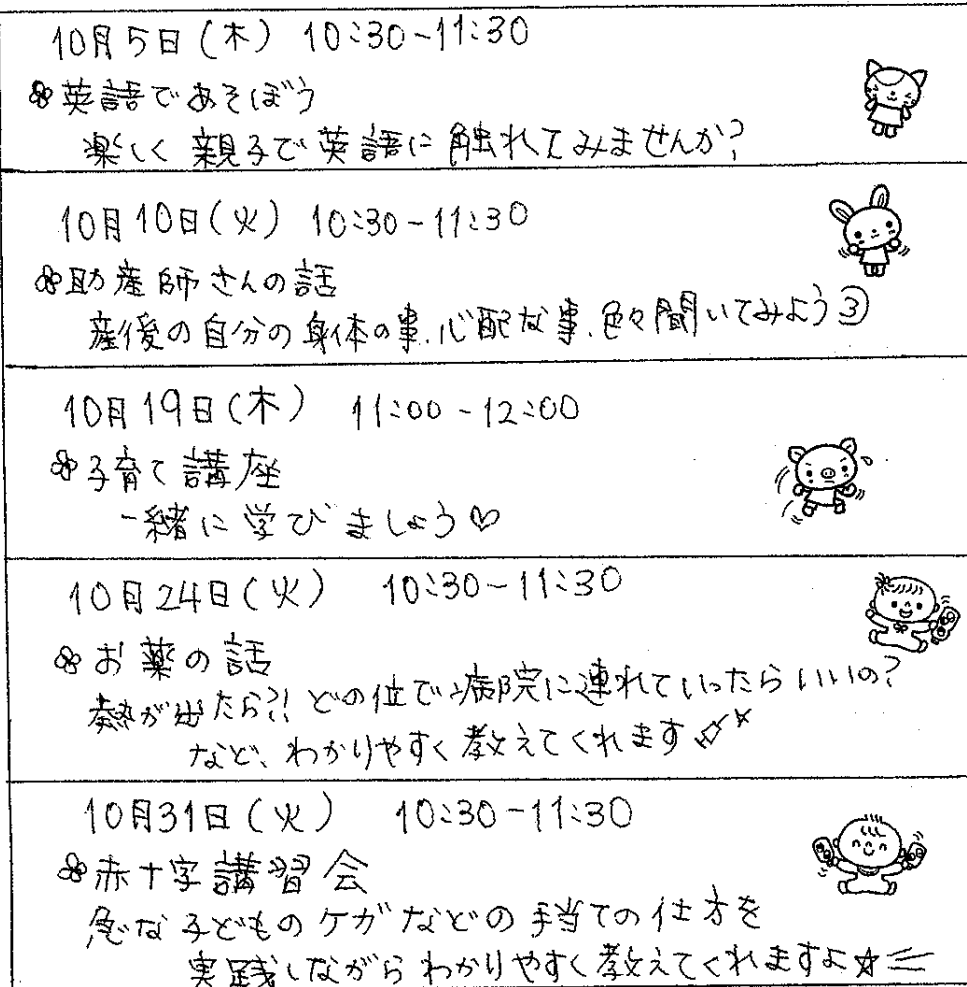 10月5日(木) 10:30-11:30
英語であそぼう
楽しく親子で英語に触れてみませんか?
10月10日(火) 10:30-11:30
助産師さんの話
産後の自分の身体の事、心配な事、色々聞いてみよう③
10月19日(木) 11:00-12:00
子育て講座
一緒に学びましょう♡
10月24日(火) 10:30-11:30
お薬の話
熱が出たら?!どの位で病院に連れていったらいいの?
など、わかりやすく教えてくれます
10月31日(火) 10:30-11:30
赤十字講習会
急な子どものケガなどの手当ての仕方を
実践しながらわかりやすく教えてくれますよ☆